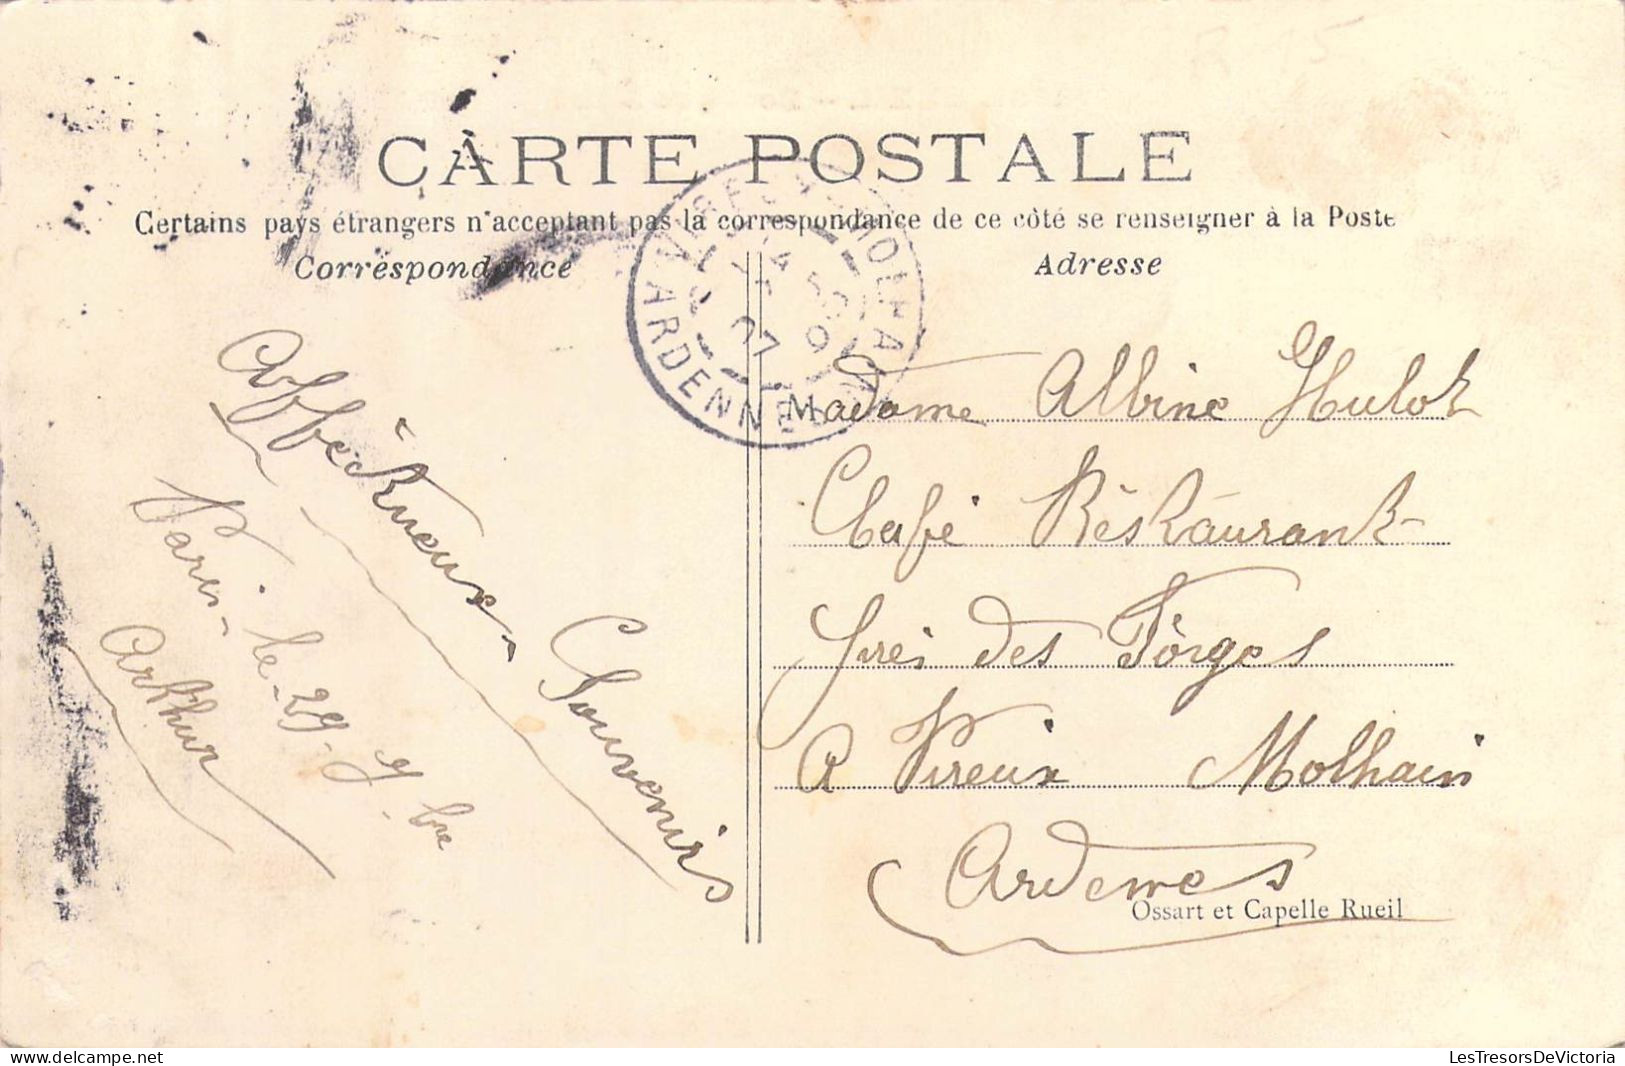 CARTE POSTALE
Certains pays étrangers n'acceptant pas la correspondance de ce côté se renseigner à la Poste
Correspondance
Adresse
ARDENNES
07
Affectueux
Souvenirs
Paris - le - 29 - 7bre
Arthur
Madame Albine Hulot
Café Restaurant
près des Forges
A Vireux Molhain
Ardennes
Ossart et Capelle Rueil
delcampe.net
LesTresorsDeVictoria